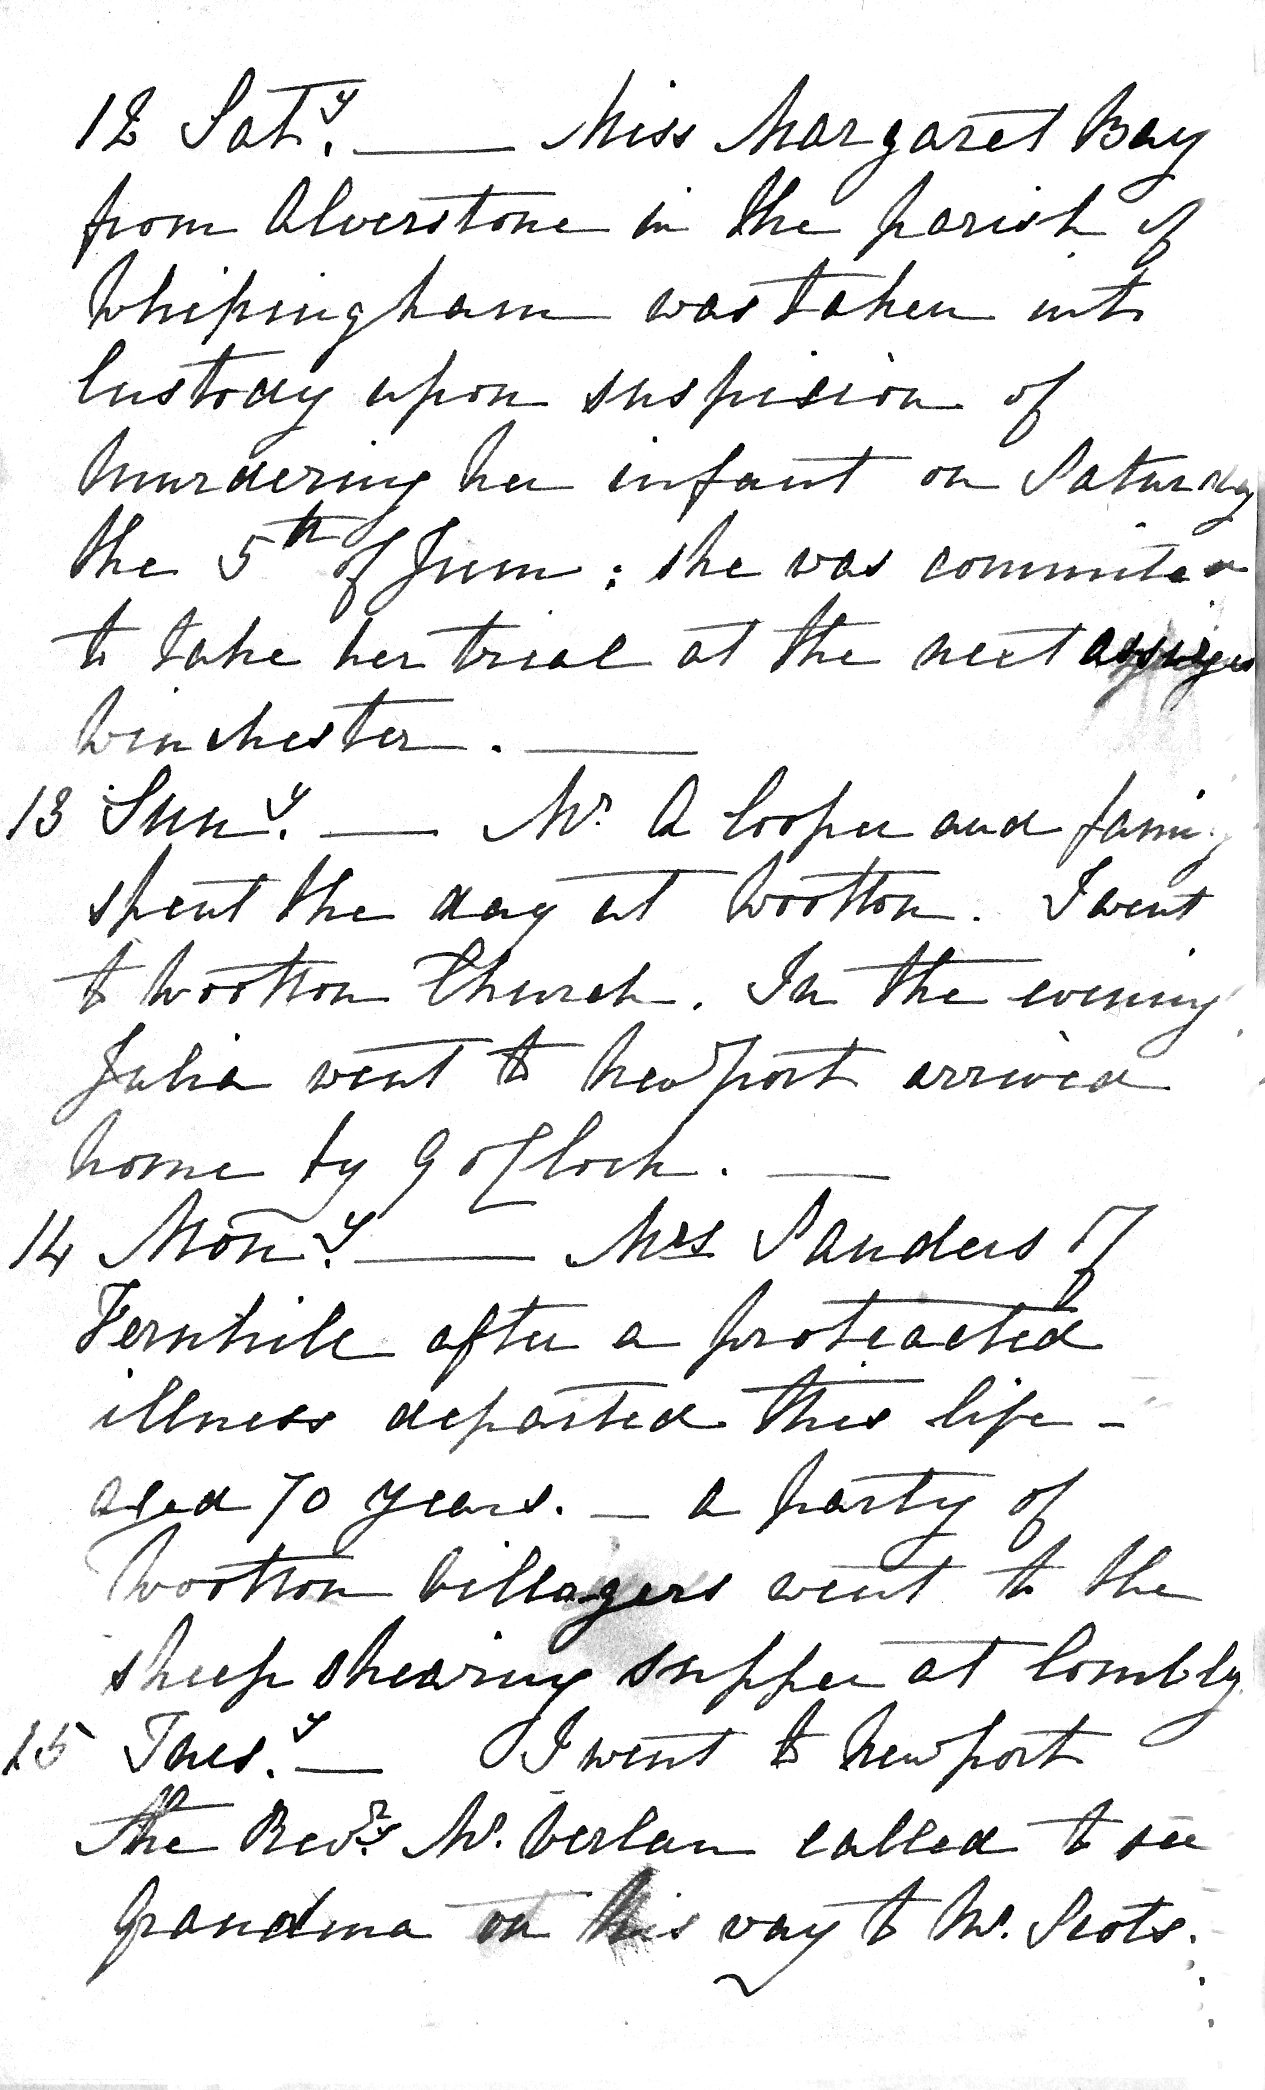 12 Saty. — Miss Margaret Bay
from Alverstone in the parish of
Whipingham was taken into
Custody upon suspicion of
Murdering her infant on Saturday
the 5th of June : she was commited
to take her trial at the next assizes
Winchester. —
13 Suny. — Mr. A Cooper and family
spent the day at Wootton. I went
to Wootton Church. In the evening
Julia went to Newport arrived
home by 9 oClock. —
14 Mony. — Mrs Sanders of
Fernhill after a protracted
illness departed this life -
aged 70 years. — a party of
Wootton Villagers went to the
sheep shearing supper at Combly
15 Tuesy. — I went to Newport
the Revd. Mr. called to see
Grandma on his way to Mr. Scots.